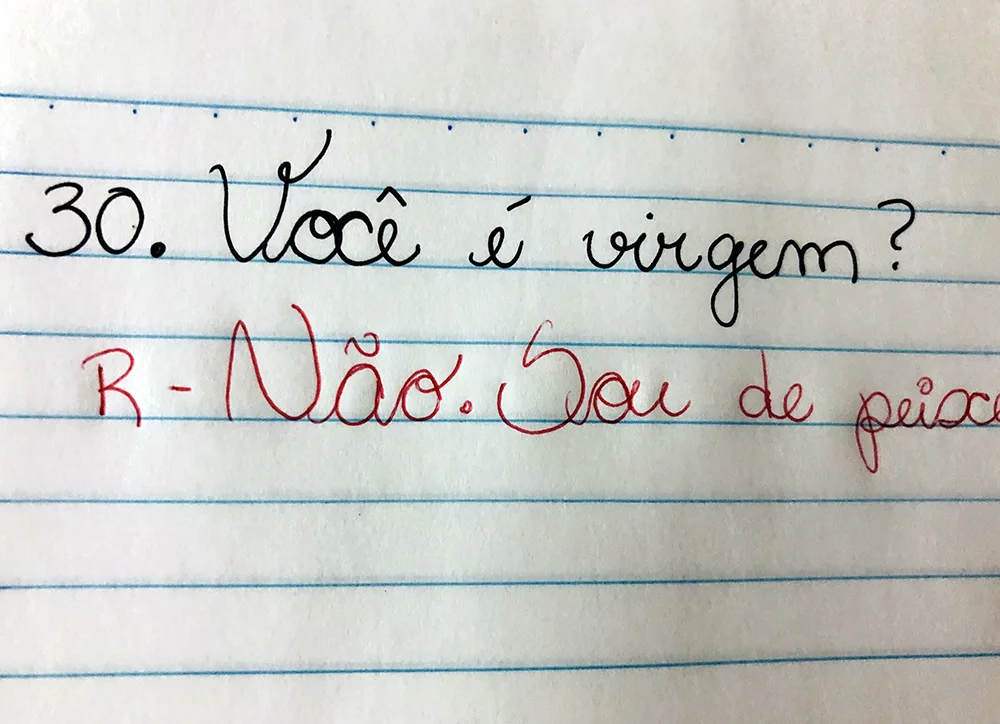 30. Você é virgem?
R - Não. Sou de peixe